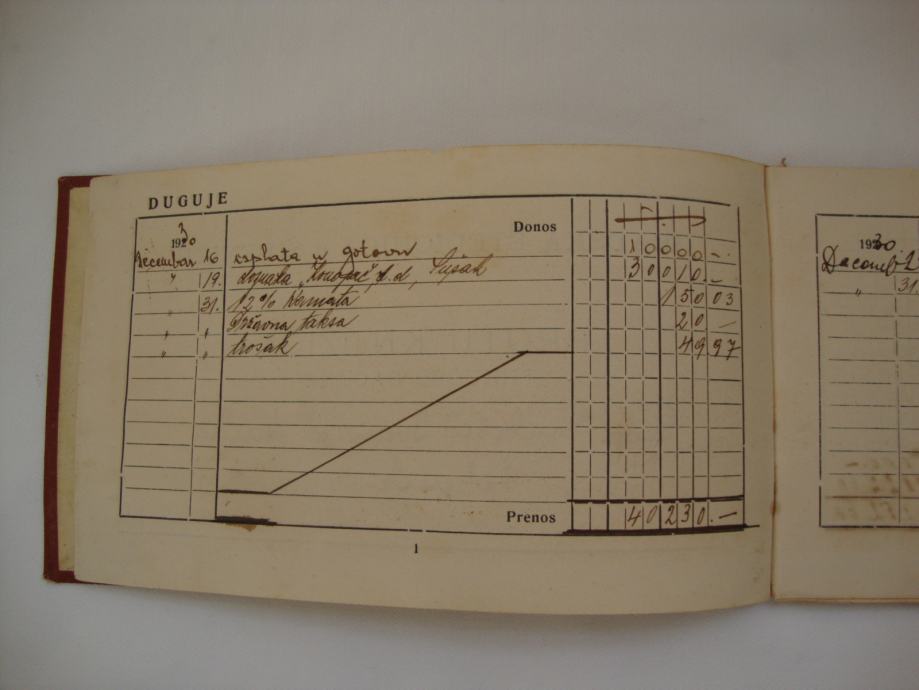 DUGUJE
1930
Donos
Decembar 16 isplata u gotovu 10000.-
" 19. "Konopac" d.d., Sušak 30010.-
" 31. 12% Kamata 150 03
" " Državna taksa 20 -
" " trošak 49 97
Prenos 40230.-
1
1930
Decemb. 2
" 31.